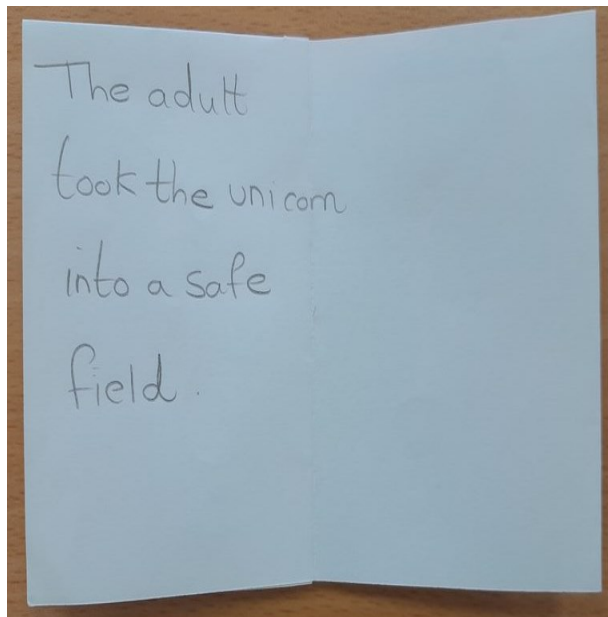 The adult
took the unicorn
into a safe
field.